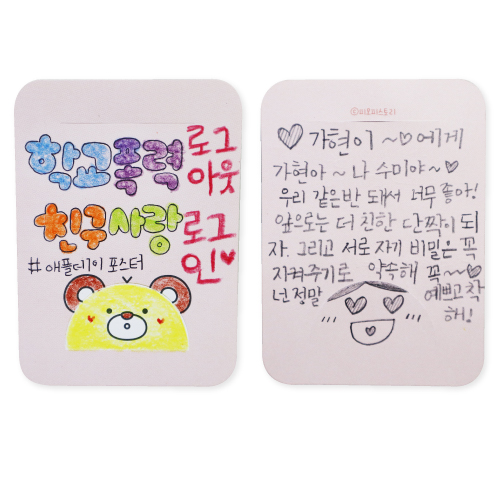 학교폭력 로그
아웃
친구사랑 로그
인♥
# 애플데이 포스터
ⓒ미모미스토리
♡ 가현이 ~♡에게
가현아 ~ 나 수미야~♡
우리 같은반 돼서 너무 좋아!
앞으로는 더 친한 단짝이 되
자. 그리고 서로 자기 비밀은 꼭
지켜주기로 약속해 꼭~~♡
넌정말 예쁘고 착
해!